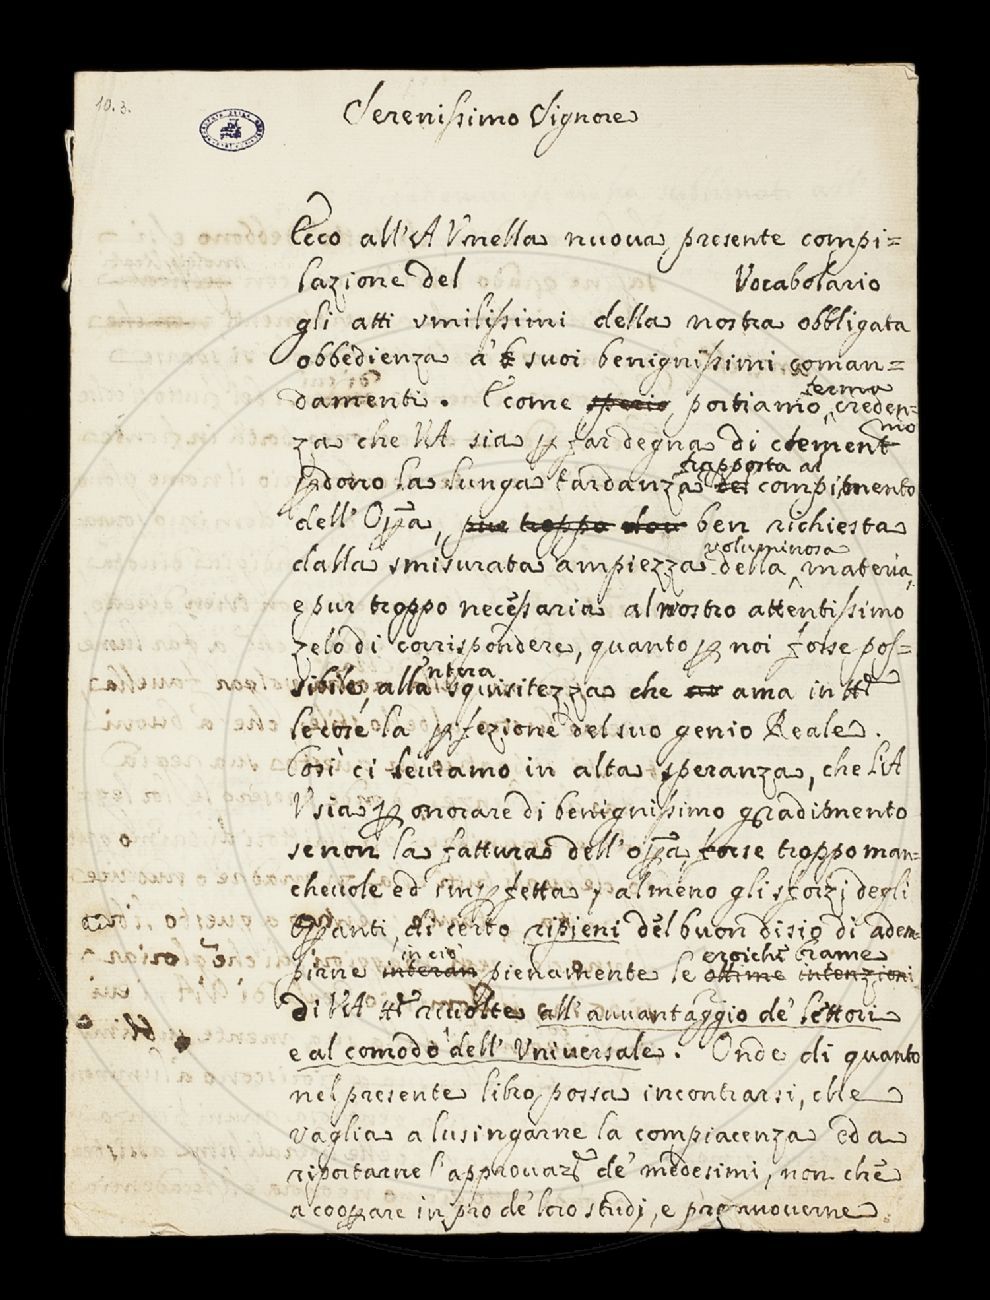 10.3.
Serenissimo Signore
Ecco all'A V. nella nuova, presente compi=
lazione del Vocabolario
gli atti vmilissimi della nostra obbligata
obbedienza à suoi benignissimi coman=
damenti. E come portiamo ferma creden=
za che VA sia p far degna di
pdono la lunga tardanza frapposta al compimento
dell'Opa, pur troppo ben richiesta
dalla smisurata ampiezza della voluminosa materia,
e pur troppo necessaria al nostro attentissimo
zelo di corrispondere, quanto p noi forse pos=
sibile, alla intera squisitezza che ama in
le cose la pfezione del suo genio Reale.
Così ci leviamo in alta speranza, che l'A
V sia p onorare di benignissimo gradimento
se non la fattura dell'opa forse troppo man=
chevole ed inpfetta, almeno gli sforzi degli
Oppanti, di certo ripieni del buon disio di adem=
pirne in ciò interam pienamente le eroiche brame ottime intenzioni
di VA rivolte all'avvantaggio de' lettori
e al comodo dell'Vniversale. Onde di quanto
nel presente libro possa incontrarsi, che
vaglia a lusingarne la compiacenza ed a
riportarne l'approvaz.e de' medesimi, non che
a coopare in pro de' loro studi, e promuoverne